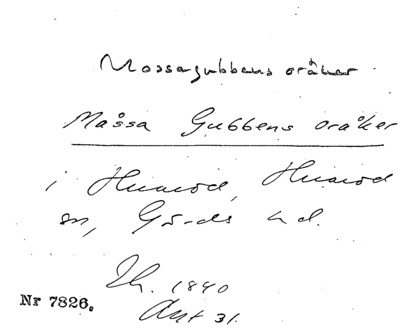 Mossagubbens oråker
Måssa Gubbens oråker
i Huaröd, Huaröd
sn, Gärds hd.
Lh. 1840
Ant 31.
Nr 7826.